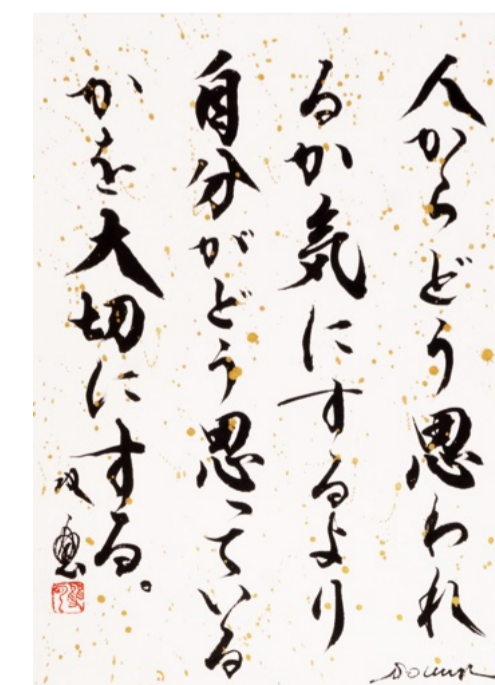 人からどう思われ
るか気にするより
自分がどう思っている
かを大切にする。